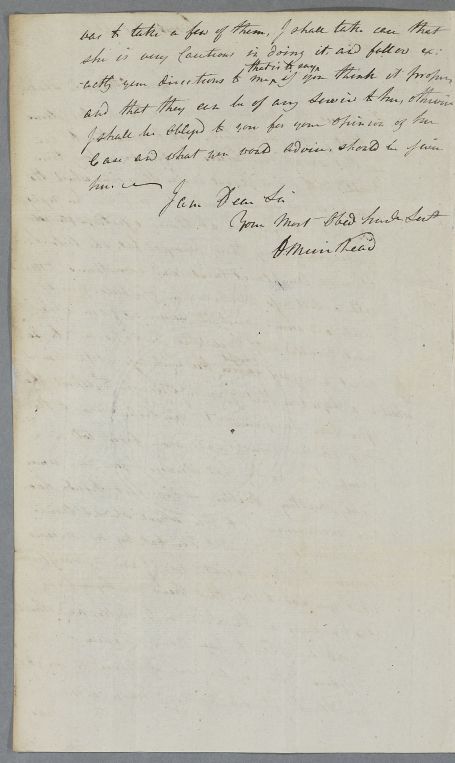 was to take a few of them, I shall take care that
she is very Cautious in doing it and follow ex:
that is to say
actly your directions to me, if you think it proper
and that they can be of any Service to her, otherwise
I shall be Obliged to you for your Opinion of her
Case and what you woud advise should be given
her.
I am Dear Sir
Your Most Obed humle Servt
Muirhead